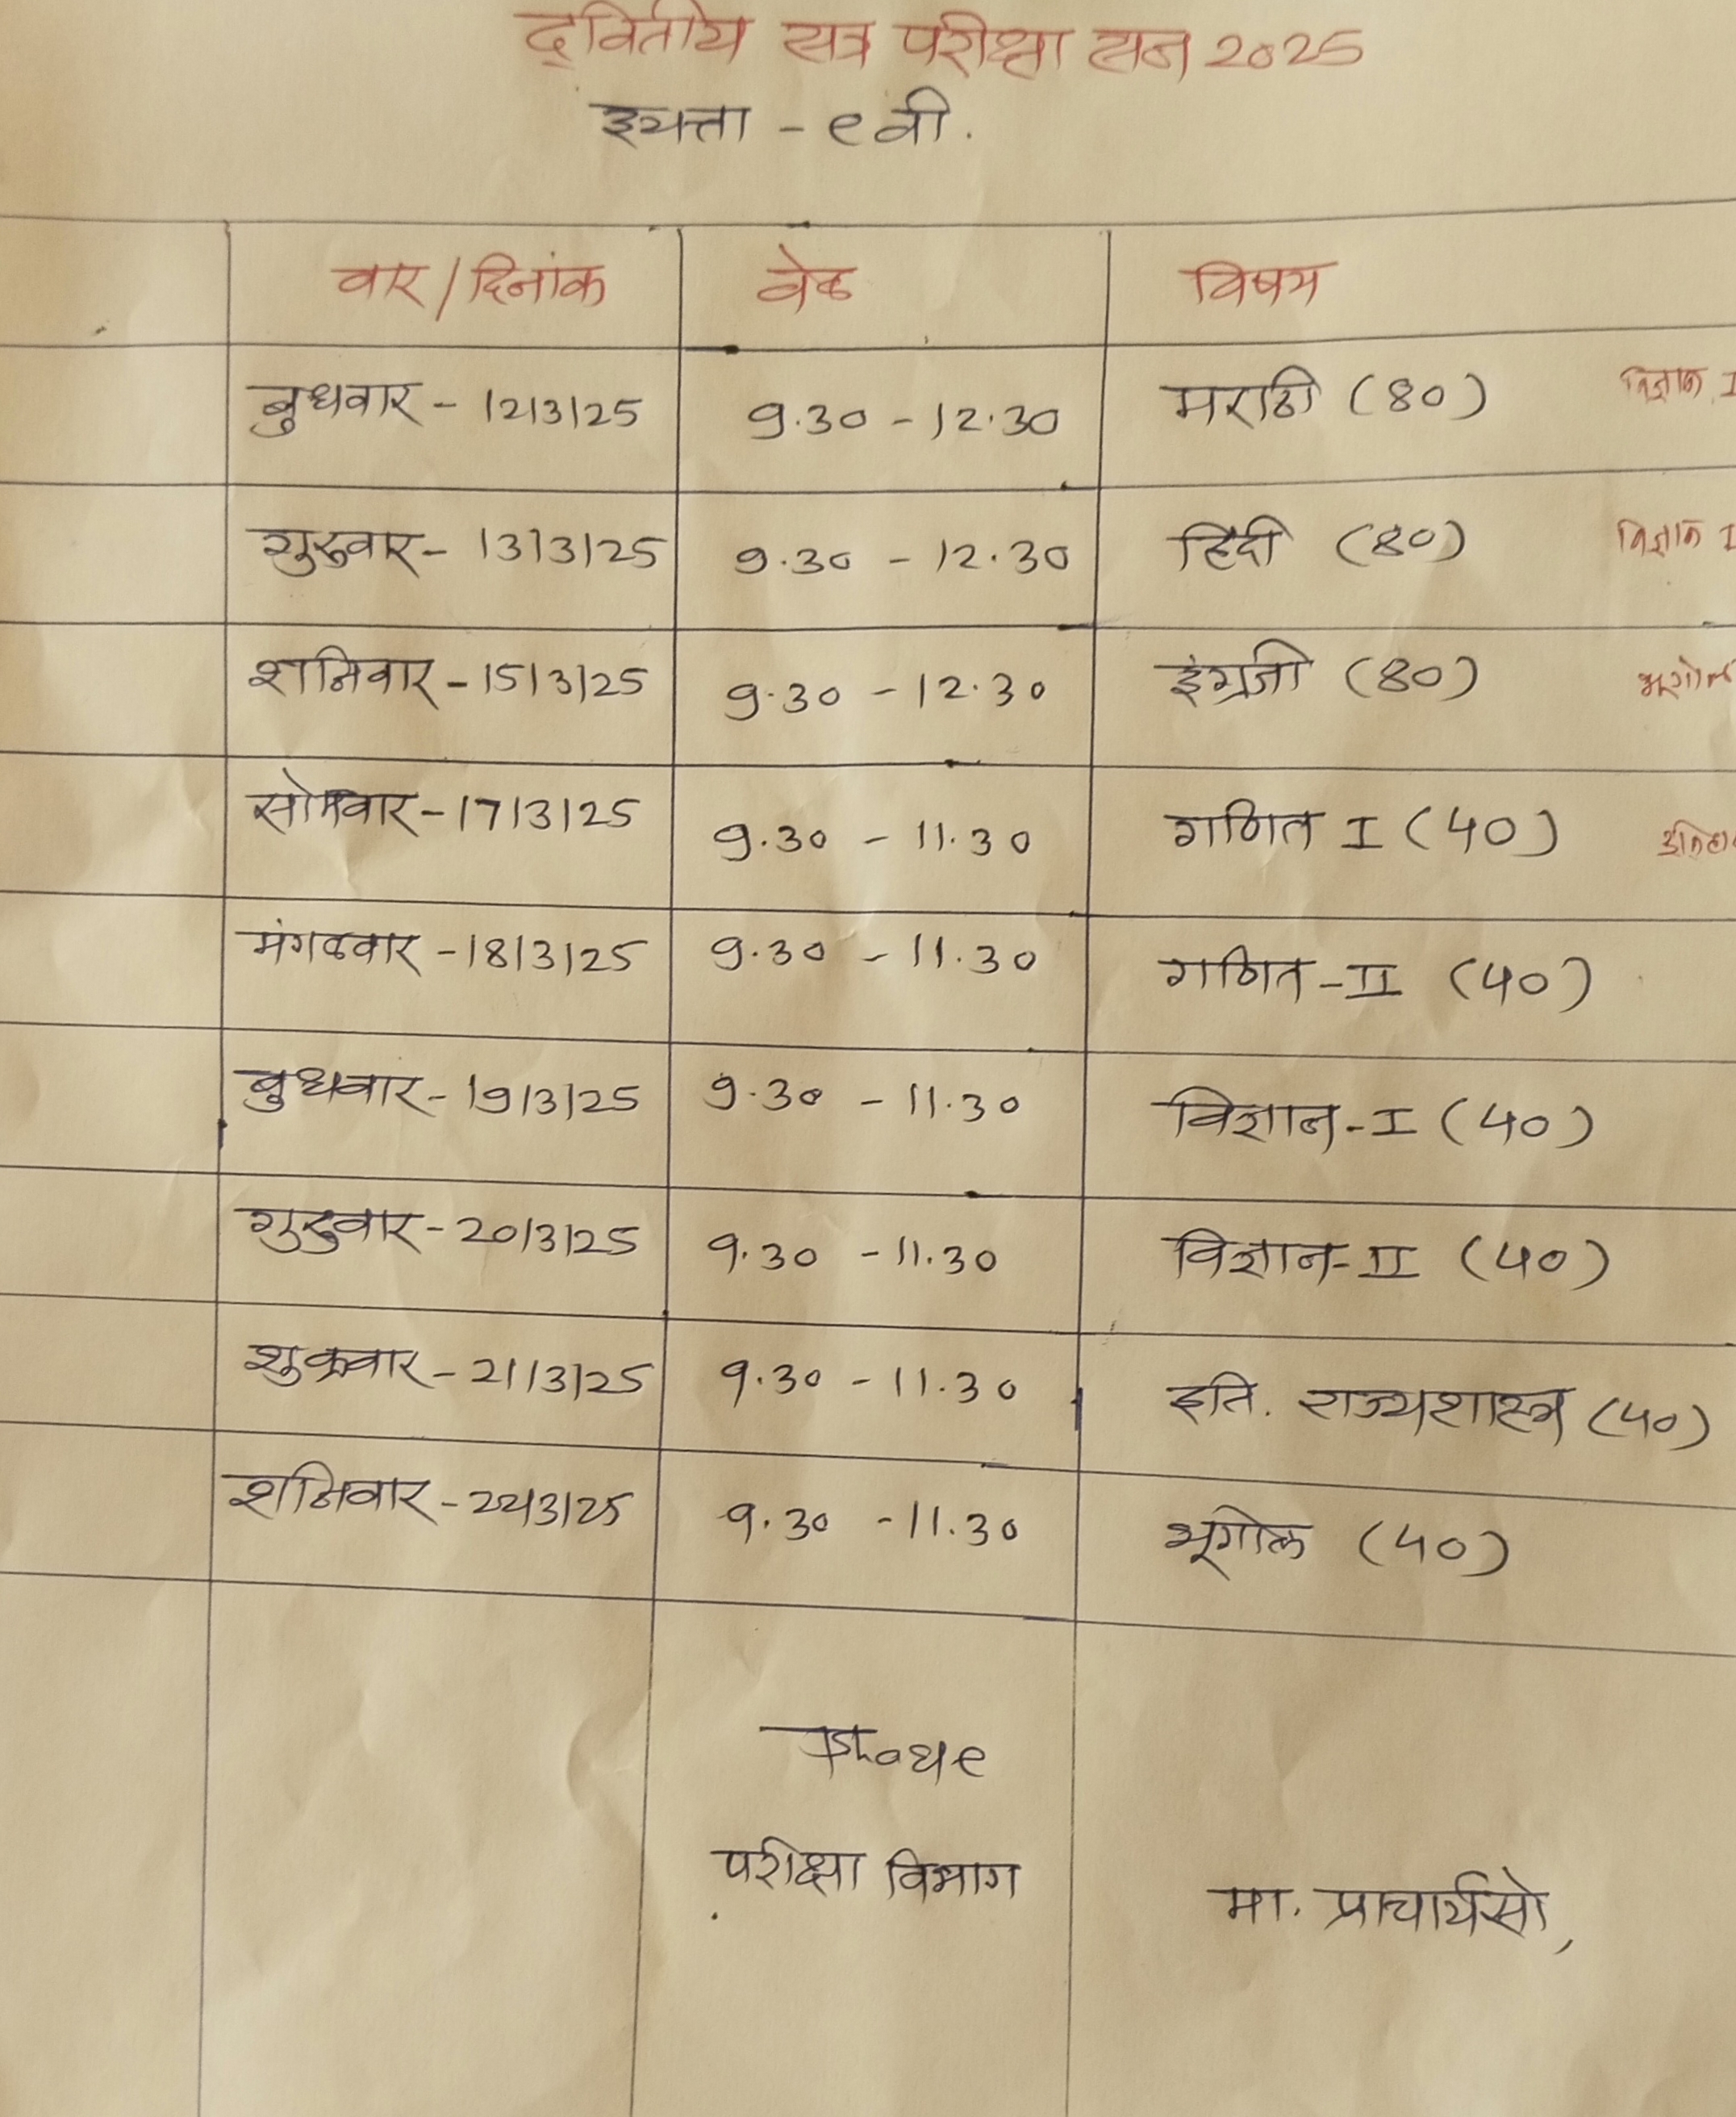 द्वितीय सत्र परीक्षा सन 2025
इयत्ता - ९ वी.
वार/दिनांक वेळ विषय
बुधवार - 12/3/25 9.30 - 12.30 मराठी (80) विज्ञान I
गुरुवार - 13/3/25 9.30 - 12.30 हिंदी (80) विज्ञान
शनिवार - 15/3/25 9.30 - 12.30 इंग्रजी (80) भूगोल
सोमवार - 17/3/25 9.30 - 11.30 गणित I (40)
मंगळवार - 18/3/25 9.30 - 11.30 गणित - II (40)
बुधवार - 19/3/25 9.30 - 11.30 विज्ञान - I (40)
गुरुवार - 20/3/25 9.30 - 11.30 विज्ञान - II (40)
शुक्रवार - 21/3/25 9.30 - 11.30 इति. राज्यशास्त्र (40)
शनिवार - 22/3/25 9.30 - 11.30 भूगोल (40)
परीक्षा विभाग
मा. प्राचार्यसो,